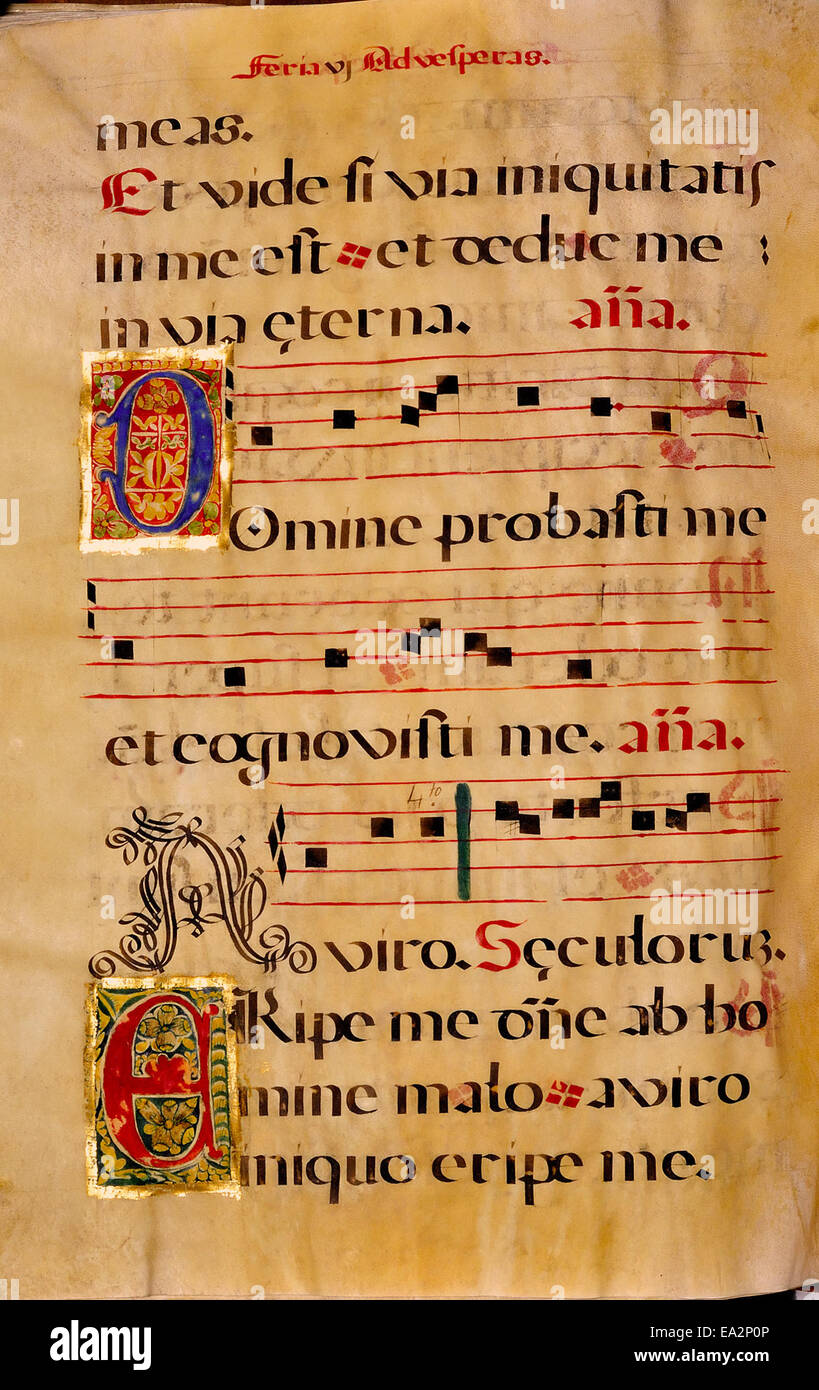 Feria vj Ad vesperas.
meas.
Et vide si via iniquitatis
in me est et deduc me
in via ęterna. an̄a.
DOmine probasti me
et cognovisti me. an̄a.
4to
A viro. Sęculoruz.
ERipe me dn̄e ab ho
mine malo a viro
iniquo eripe me.
alamy
alamy
a
a
a
alamy
Image ID: EA2P0P
www.alamy.com